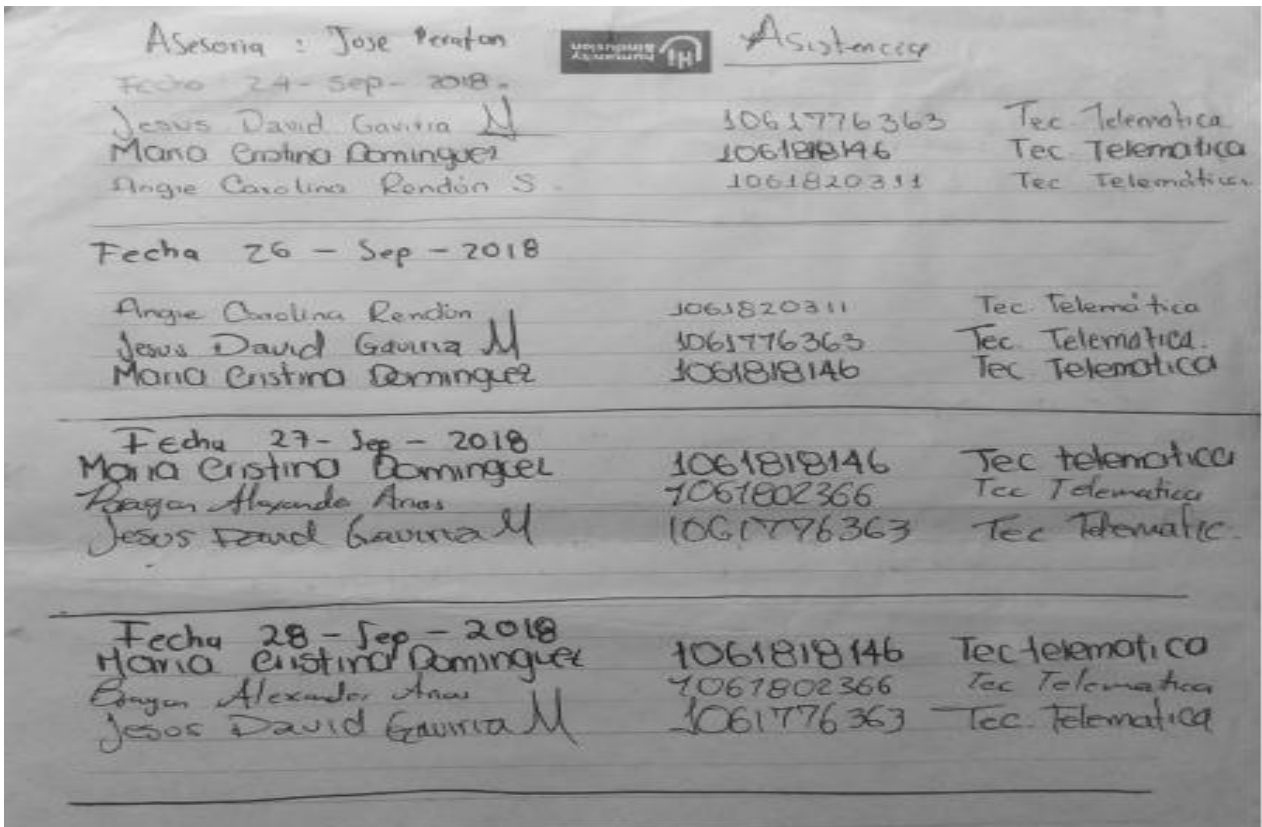 Asesoria : Jose Asistencia
Fecha 24-Sep-2018.
Jesus David Gaviria M 1061776363 Tec. Telematica
Maria Cristina Dominguez 1061818146 Tec Telematica
Angie Carolina Rendón S. 1061820311 Tec Telemática
Fecha 26 - Sep - 2018
Angie Carolina Rendón 1061820311 Tec. Telemática
Jesus David Gaviria M 1061776363 Tec. Telematica.
Maria Cristina Dominguez 1061818146 Tec Telematica
Fecha 27- Sep - 2018
Maria Cristina Dominguez 1061818146 Tec telematica
Alexander 1061802366 Tec Telematica
Jesus David Gaviria M 1061776363 Tec Telematic.
Fecha 28 - Sep - 2018
Maria Cristina Dominguez 1061818146 Tec telematica
Alexander 1061802366 Tec Telematica
Jesus David Gaviria M 1061776363 Tec. Telematica